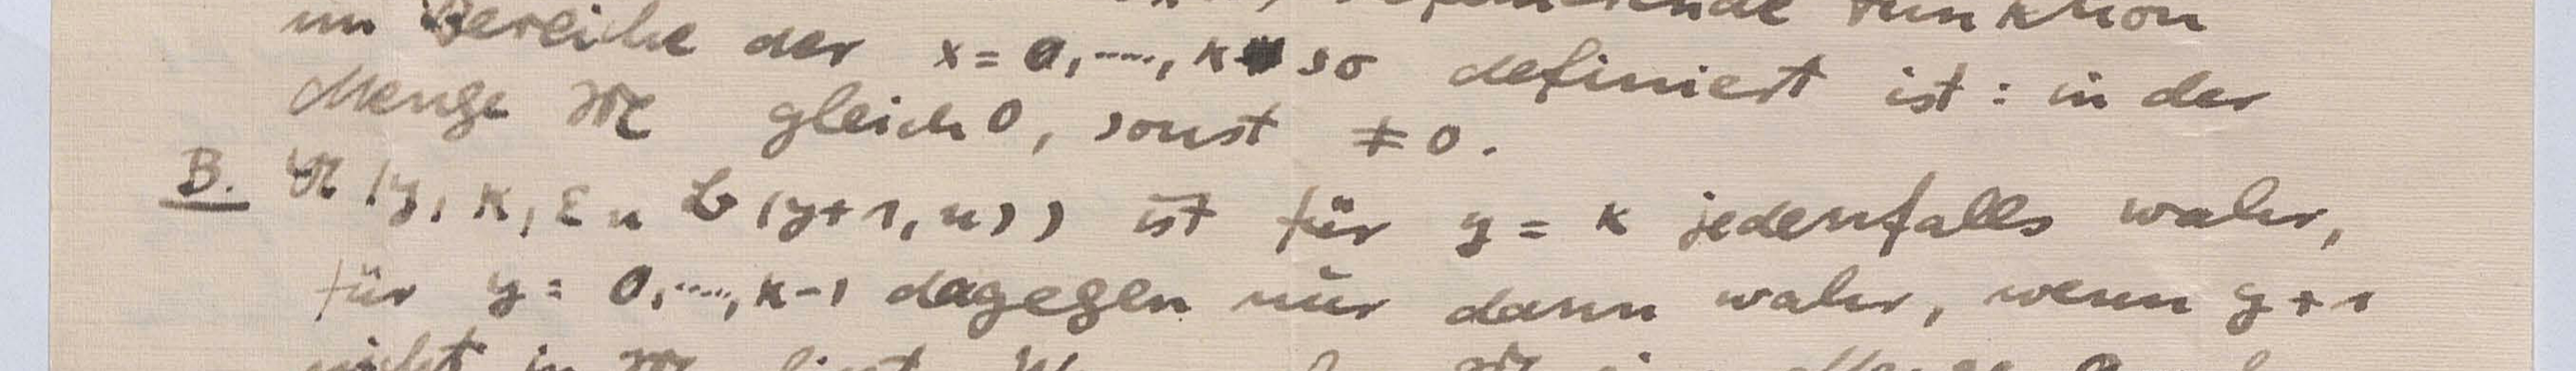 Funktion
im Bereiche der x = 0, ...., k so definiert ist: in der
Menge 𝔐 gleich 0, sonst ≠ 0.
B. (y, k, Σu (y+1, u)) ist für y = k jedenfalls wahr,
für y = 0, ...., k-1 dagegen nur dann wahr, wenn y+1
nicht in 𝔐 liegt.